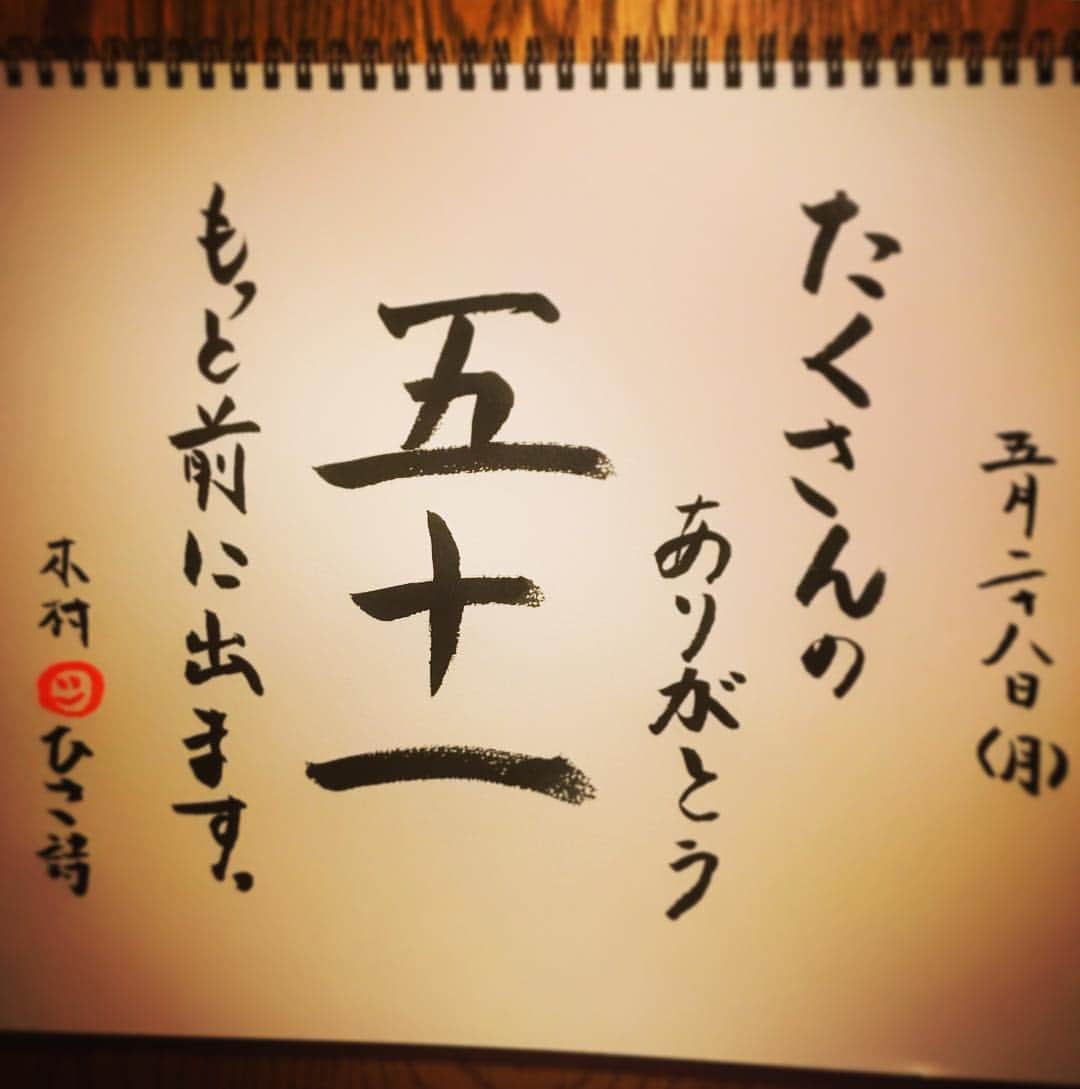 五月二十八日(月)
たくさんの
ありがとう
五十一
もっと前に出ます。
木村ひさ詩